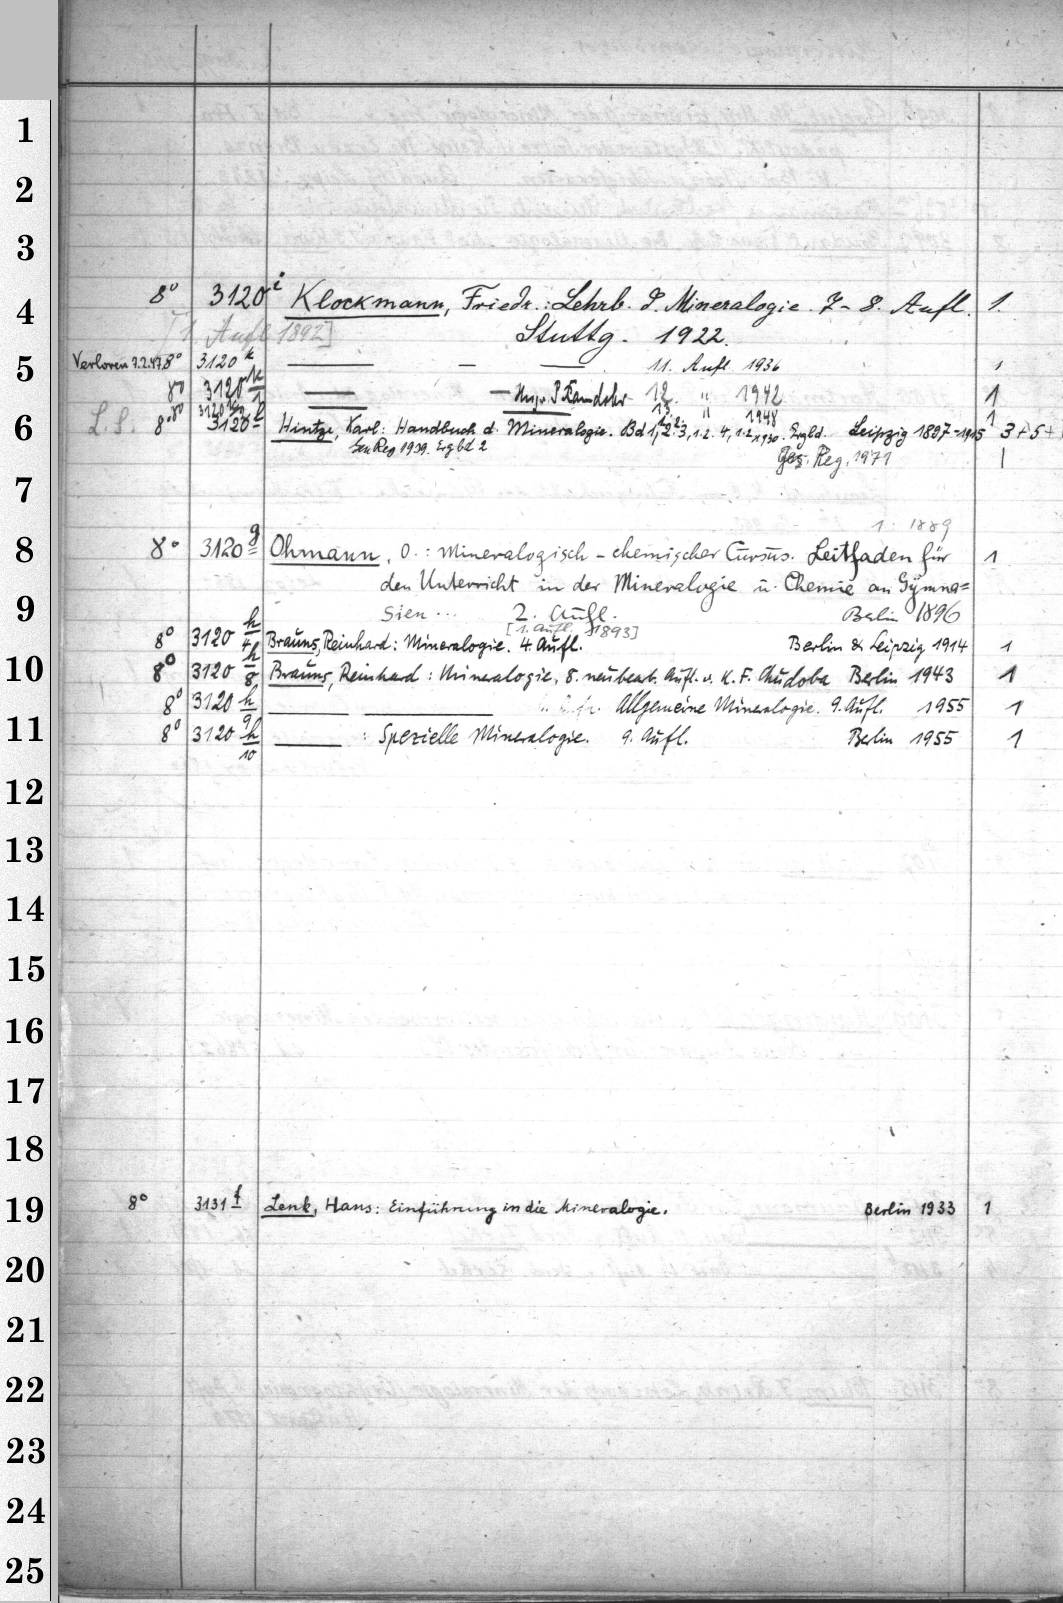 1
2
3
4
8° 3120 i Klockmann, Friedr.: Lehrb. d. Mineralogie. 7-8. Aufl. 1.
[1. Aufl. 1892] Stuttg. 1922.
5
Verloren 7.2.47 8° 3120 k — — — 11. Aufl 1936 1
8° 3120 k/1 — — 12. " 1942 1
3120 13. " 1948 1
6
L.S. 8° 3120 l Hintze, Karl: Handbuch d. Mineralogie. Bd 1, 2, 3, 1.2. 4, 1.2 1930. Ergbd. Leipzig 1897-1915 3+5+
Gen Reg 1939. Ergbd 2 Ges. Reg. 1971 1
7
1. 1889
8
8° 3120 g Ohmann, O.: Mineralogisch-chemischer Cursus. Leitfaden für 1
den Unterricht in der Mineralogie u. Chemie an Gymna=
9
sien ... 2. Aufl. Berlin 1896
[1. Aufl. 1893]
8° 3120 h/4 Brauns, Reinhard: Mineralogie. 4. Aufl. Berlin & Leipzig 1914 1
10
8° 3120 h/8 Brauns, Reinhard: Mineralogie, 8. neubearb. Aufl. v. K. F. Chudoba Berlin 1943 1
8° 3120 h/9 — — Allgemeine Mineralogie. 9. Aufl. 1955 1
11
8° 3120 h/10 — : Spezielle Mineralogie. 9. Aufl. Berlin 1955 1
12
13
14
15
16
17
18
19
8° 3131 f Lenk, Hans: Einführung in die Mineralogie. Berlin 1933 1
20
21
22
23
24
25